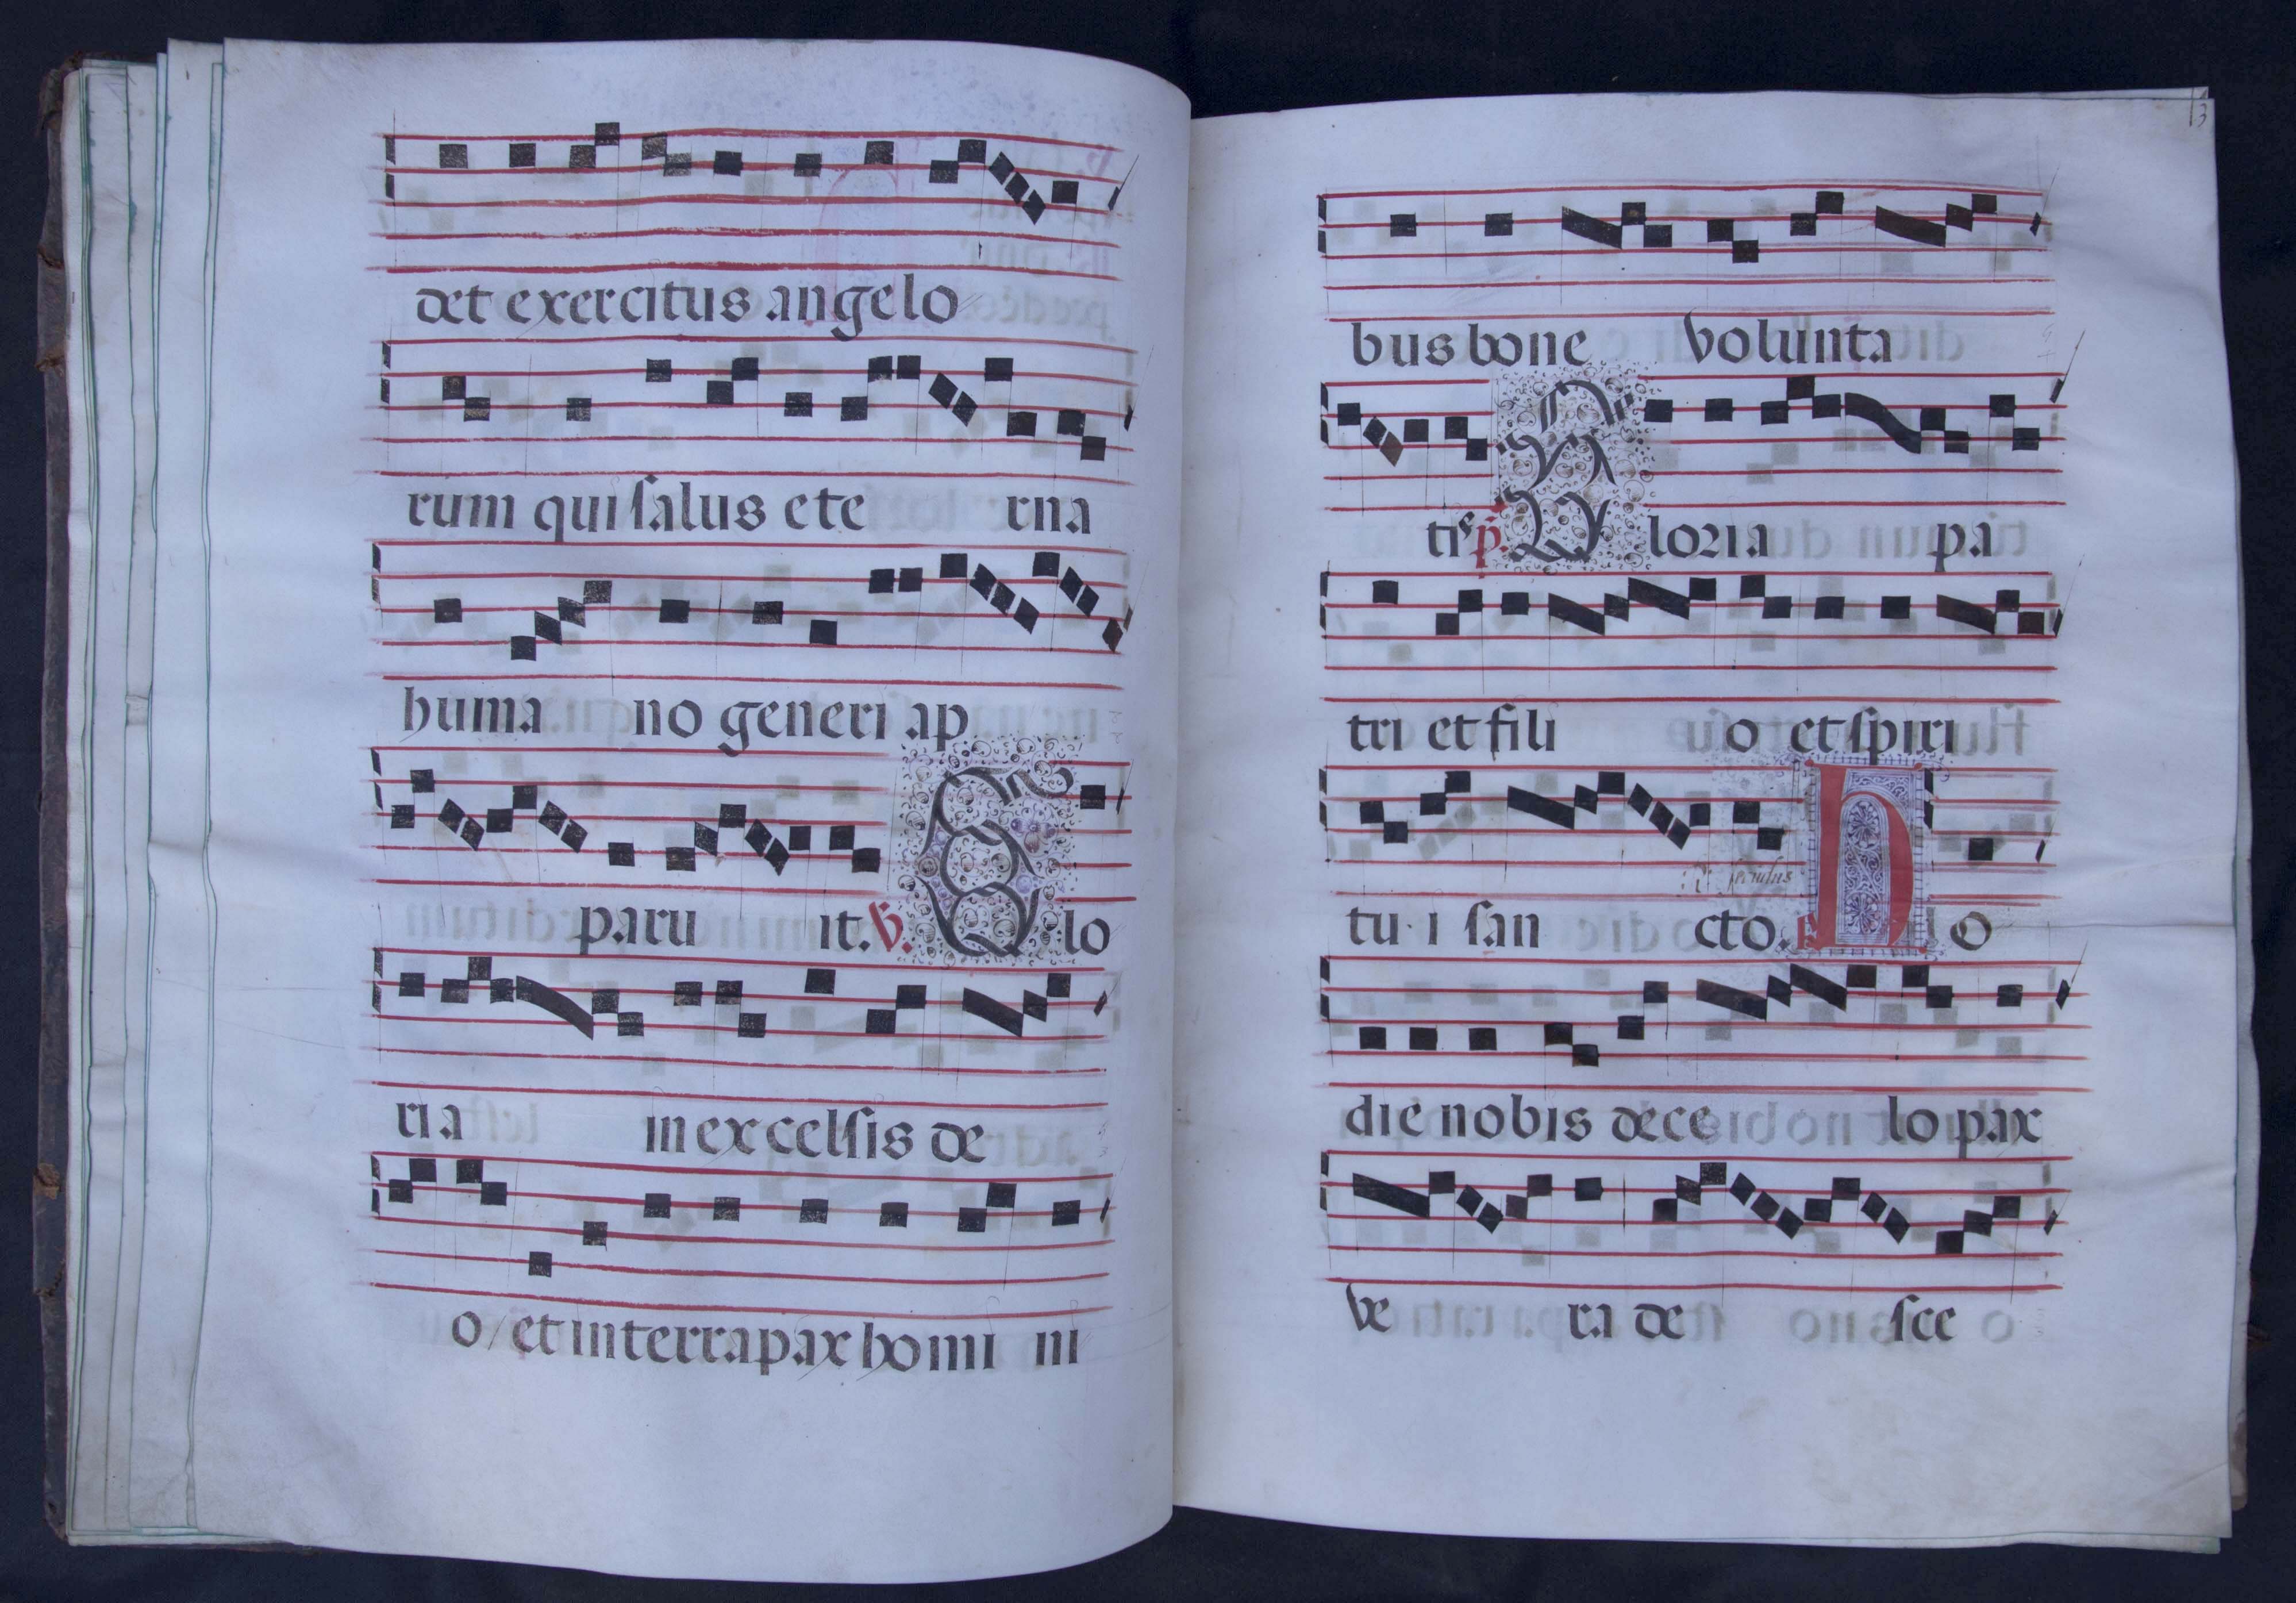 det exercitus angelo
rum qui salus ete rna
huma no generi ap
paru it. V. Glo
ria in excelsis de
o et in terra pax homi ni
13
bus bone volunta
tis p. Gloria pa
tri et fili o et spiri
tu i san cto. R Ho
die nobis de ce lo pax
ve ra de sce